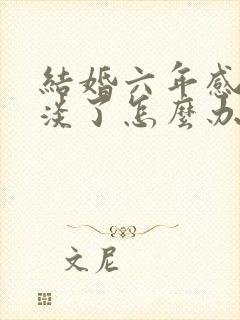 結婚六年感
淡了怎麼办
文尼